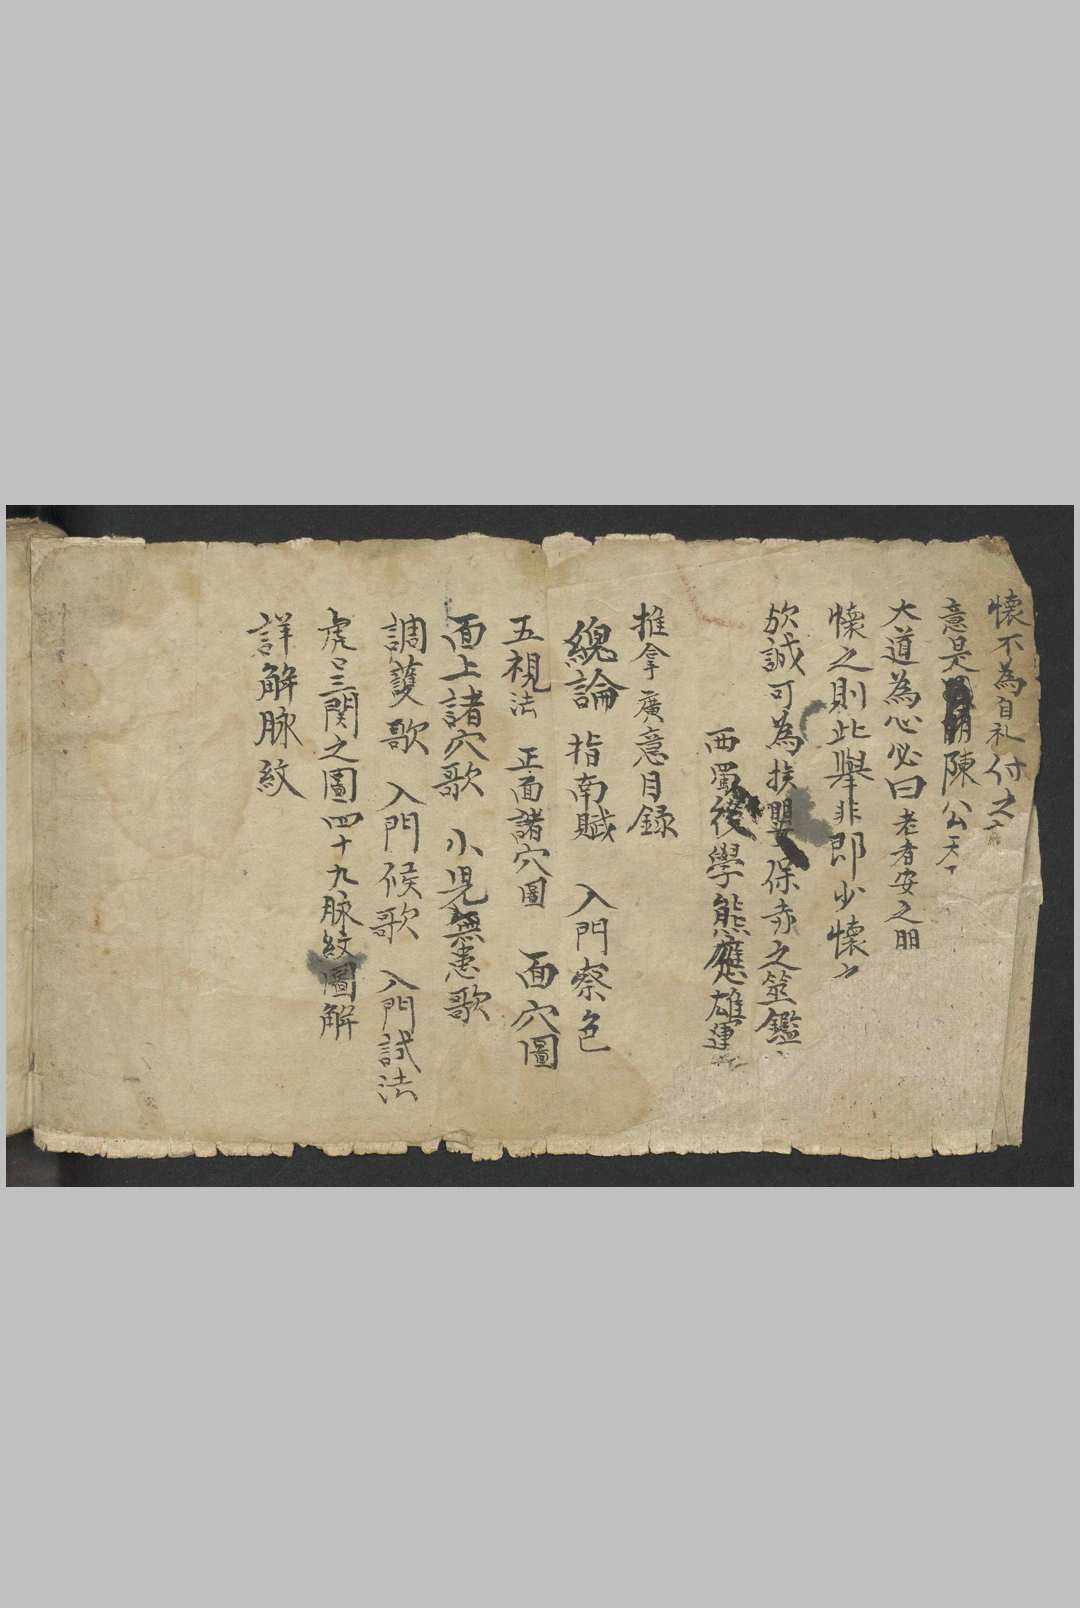 懷不為自礼付之
意是陳公天下
大道為心必曰老者安之朋
懷之則此舉非即少懷之
欤誠可為挨嬰保赤之筮鑑
西蜀後學熊應雄運
推拿廣意目録
總論 指南賦 入門察色
五視法 正面諸穴圖 面穴圖
面上諸穴歌 小児無患歌
調護歌 入門候歌 入門試法
虎口三関之圖四十九脉紋圖解
詳解脉紋